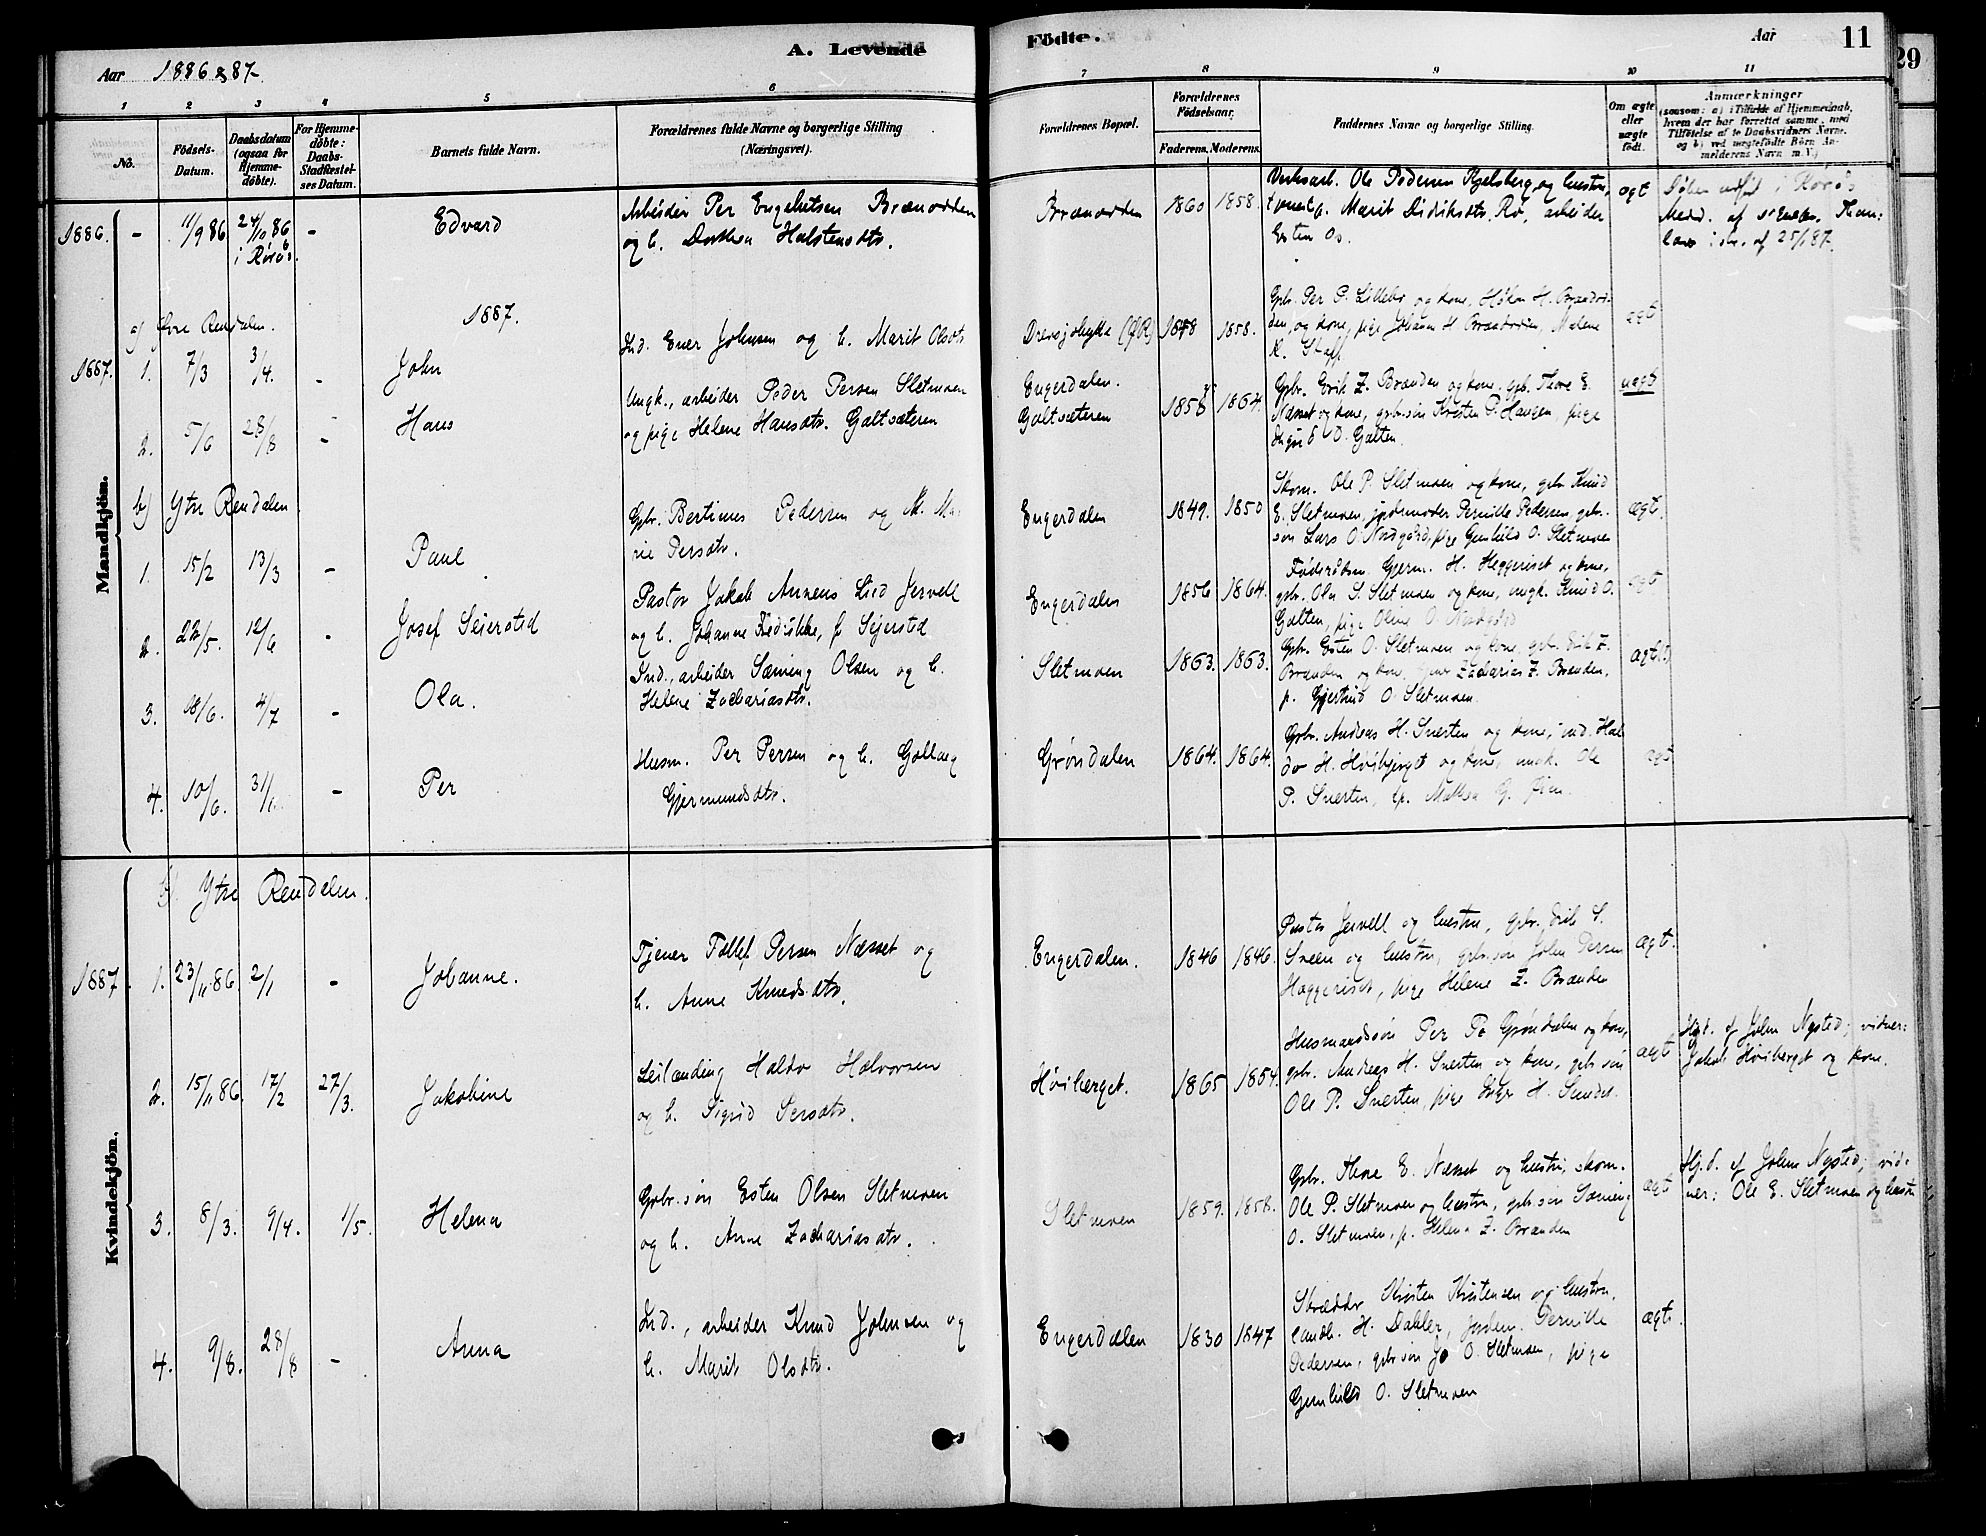 A. Levende
Födte.
Aar
11
29
Aar 1886 & 87.
1 2 3 4 5 6 7 8 9 10 11
No.
Födsels-
Datum.
Daabsdatum
(ogsaa for
Hjemme-
döbte).
For Hjemme-
döbte:
Daabs-
Stadfæstel-
ses Datum.
Barnets fulde Navn.
Forældrenes fulde Navne og borgerlige Stilling
(Næringsvei).
Forældrenes Bopæl.
Forældrenes
Födselsaar.
Faderens. Moderens.
Faddernes Navne og borgerlige Stilling.
Om ægte
eller
uægte
födt.
Anmærkninger
(saasom: a) i Tilfælde af Hjemmedaab,
hvem der har forrettet samme, med
Tilföielse af to Daabsvidners Navne.
og b) ved uægtefödte Börn An-
melderens Navn m. V.)
Mandkjön.
1886. - 11/9 86 24/10 86 - Edvard
i Røros.
Arbeider Per Engebretsen Brænodden
og h. Dorthea Halstensdtr.
Brænodden 1860 1858.
Verksarb. Ole Pedersen Kjelsberg og hustru,
Marit Didriksdtr. Rø, arbeider
Esten Os.
ægt
Døben udført i Røros
1887.
a) Øvre Rendalen.
1887. 1. 7/3 3/4. - John
Ind. Ener Johnsen og h. Marit Olsdtr.
Drevsjøhytte (ØR) 1848 1858.
Gbr. Per P. Lillebo og kone, Håkon H. Brændvol-
den, og kone, pige Johanne H. Brændvolden, Malene
K. Staff
ægt
2. 5/6 28/8 - Hans
Ungk., arbeider Peder Persen Sletmoen
og pige Helene Hansdtr. Galtsæteren
Engerdalen.
Galtsæteren 1858 1864.
Gbr. Erik Z. Brænden og kone, gbr. Thore E.
Næsset og kone, gbr.søn Kristen P. Haugen, pige
O. Galten.
uægt
b) Ytre Rendalen
1. 15/2 13/3 - Paul
Gbr. Bertines Pedersen og M. Ma-
rie Persdtr.
Engerdalen 1849. 1850
Skom. Ole P. Sletmoen og kone, gbr. Knud
E. Sletmoen, jordmoder Pernille Pedersen, gbr.-
søn Lars O. Nordgård, pige Gunhild O. Sletmoen
ægt.
2. 22/5. 12/6 - Josef Seiersted
Pastor Jakob Anneus Lied Jervell
og h. Johanne Fredrikke, f. Sejersted
Engerdalen 1856 1864.
Føderådsm. Gjerm. H. Heggeriset og kone,
gbr. Ole S. Sletmoen og kone, ungk. Knud O.
Galten, pige Oline O. Nordgård
ægt
3. 18/6. 4/7 - Ola.
Ind., arbeider Sæming Olsen og h.
Helene Zachariasdtr.
Sletmoen 1863. 1863.
Gbr. Esten O. Sletmoen og kone, gbr. Erik Z.
Brænden og kone, Zacharias Z. Brænden,
p. Gjertrud O. Sletmoen.
ægt.
4. 10/6. - Per
Husm. Per Persen og h. Gollaug
Gjermundsdtr.
Grøndalen 1864. 1864.
Gbr. Andreas H. Snerten og kone, ind. Hal
dor H. Høibjerget og kone, ungk. Ole
P. Snerten, p. Mathea G.
ægt
Kvindekjön.
b) Ytre Rendalen.
1887. 1. 23/11 86. 2/1 - Johanne.
Tjener Tollef Persen Næsset og
h. Anne Knudsdtr.
Engerdalen. 1846 1846.
Pastor Jervell og hustru, gbr. Erik S.
Sneen og hustru, gbr.søn John Persen
Heggeriset, pige Helene Z. Brænden
ægt.
2. 15/11 86. 17/2 27/3. Jakobine
Leilænding Haldor Halvorsen
og h. Sigrid Persdtr.
Høiberget. 1865 1854.
Husmandssøn Per P. Grøndalen og kone,
gbr. Andreas H. Snerten og kone, gbr.søn
Ole P. Snerten, pige Inger H. Sundet.
ægt
Hjd. af John Nysted; vidner:
Jakob Høiberget og kone.
3. 8/3. 9/4. 1/5. Helena
Gbr.søn Esten Olsen Sletmoen
og h. Anne Zachariasdtr.
Sletmoen 1859. 1858.
Gbr. Thore E. Næsset og hustru, skom.
Ole P. Sletmoen og hustru, gbr.søn Sæming
O. Sletmoen, p. Helena Z. Brænden
ægt
Hj.d. af John Nysted; vid-
ner: Ole E. Sletmoen og hustru
4. 9/8. 28/8 - Anna
Ind., arbeider Knud Johnsen og
h. Marit Olsdtr.
Engerdalen 1830 1847
Skrædder Kristen Kristensen og hustru,
landh. H. Dahler, jordm. Pernille
Pedersen, gbr.søn Jo O. Sletmoen, pige
Gunhild O. Sletmoen
ægt.